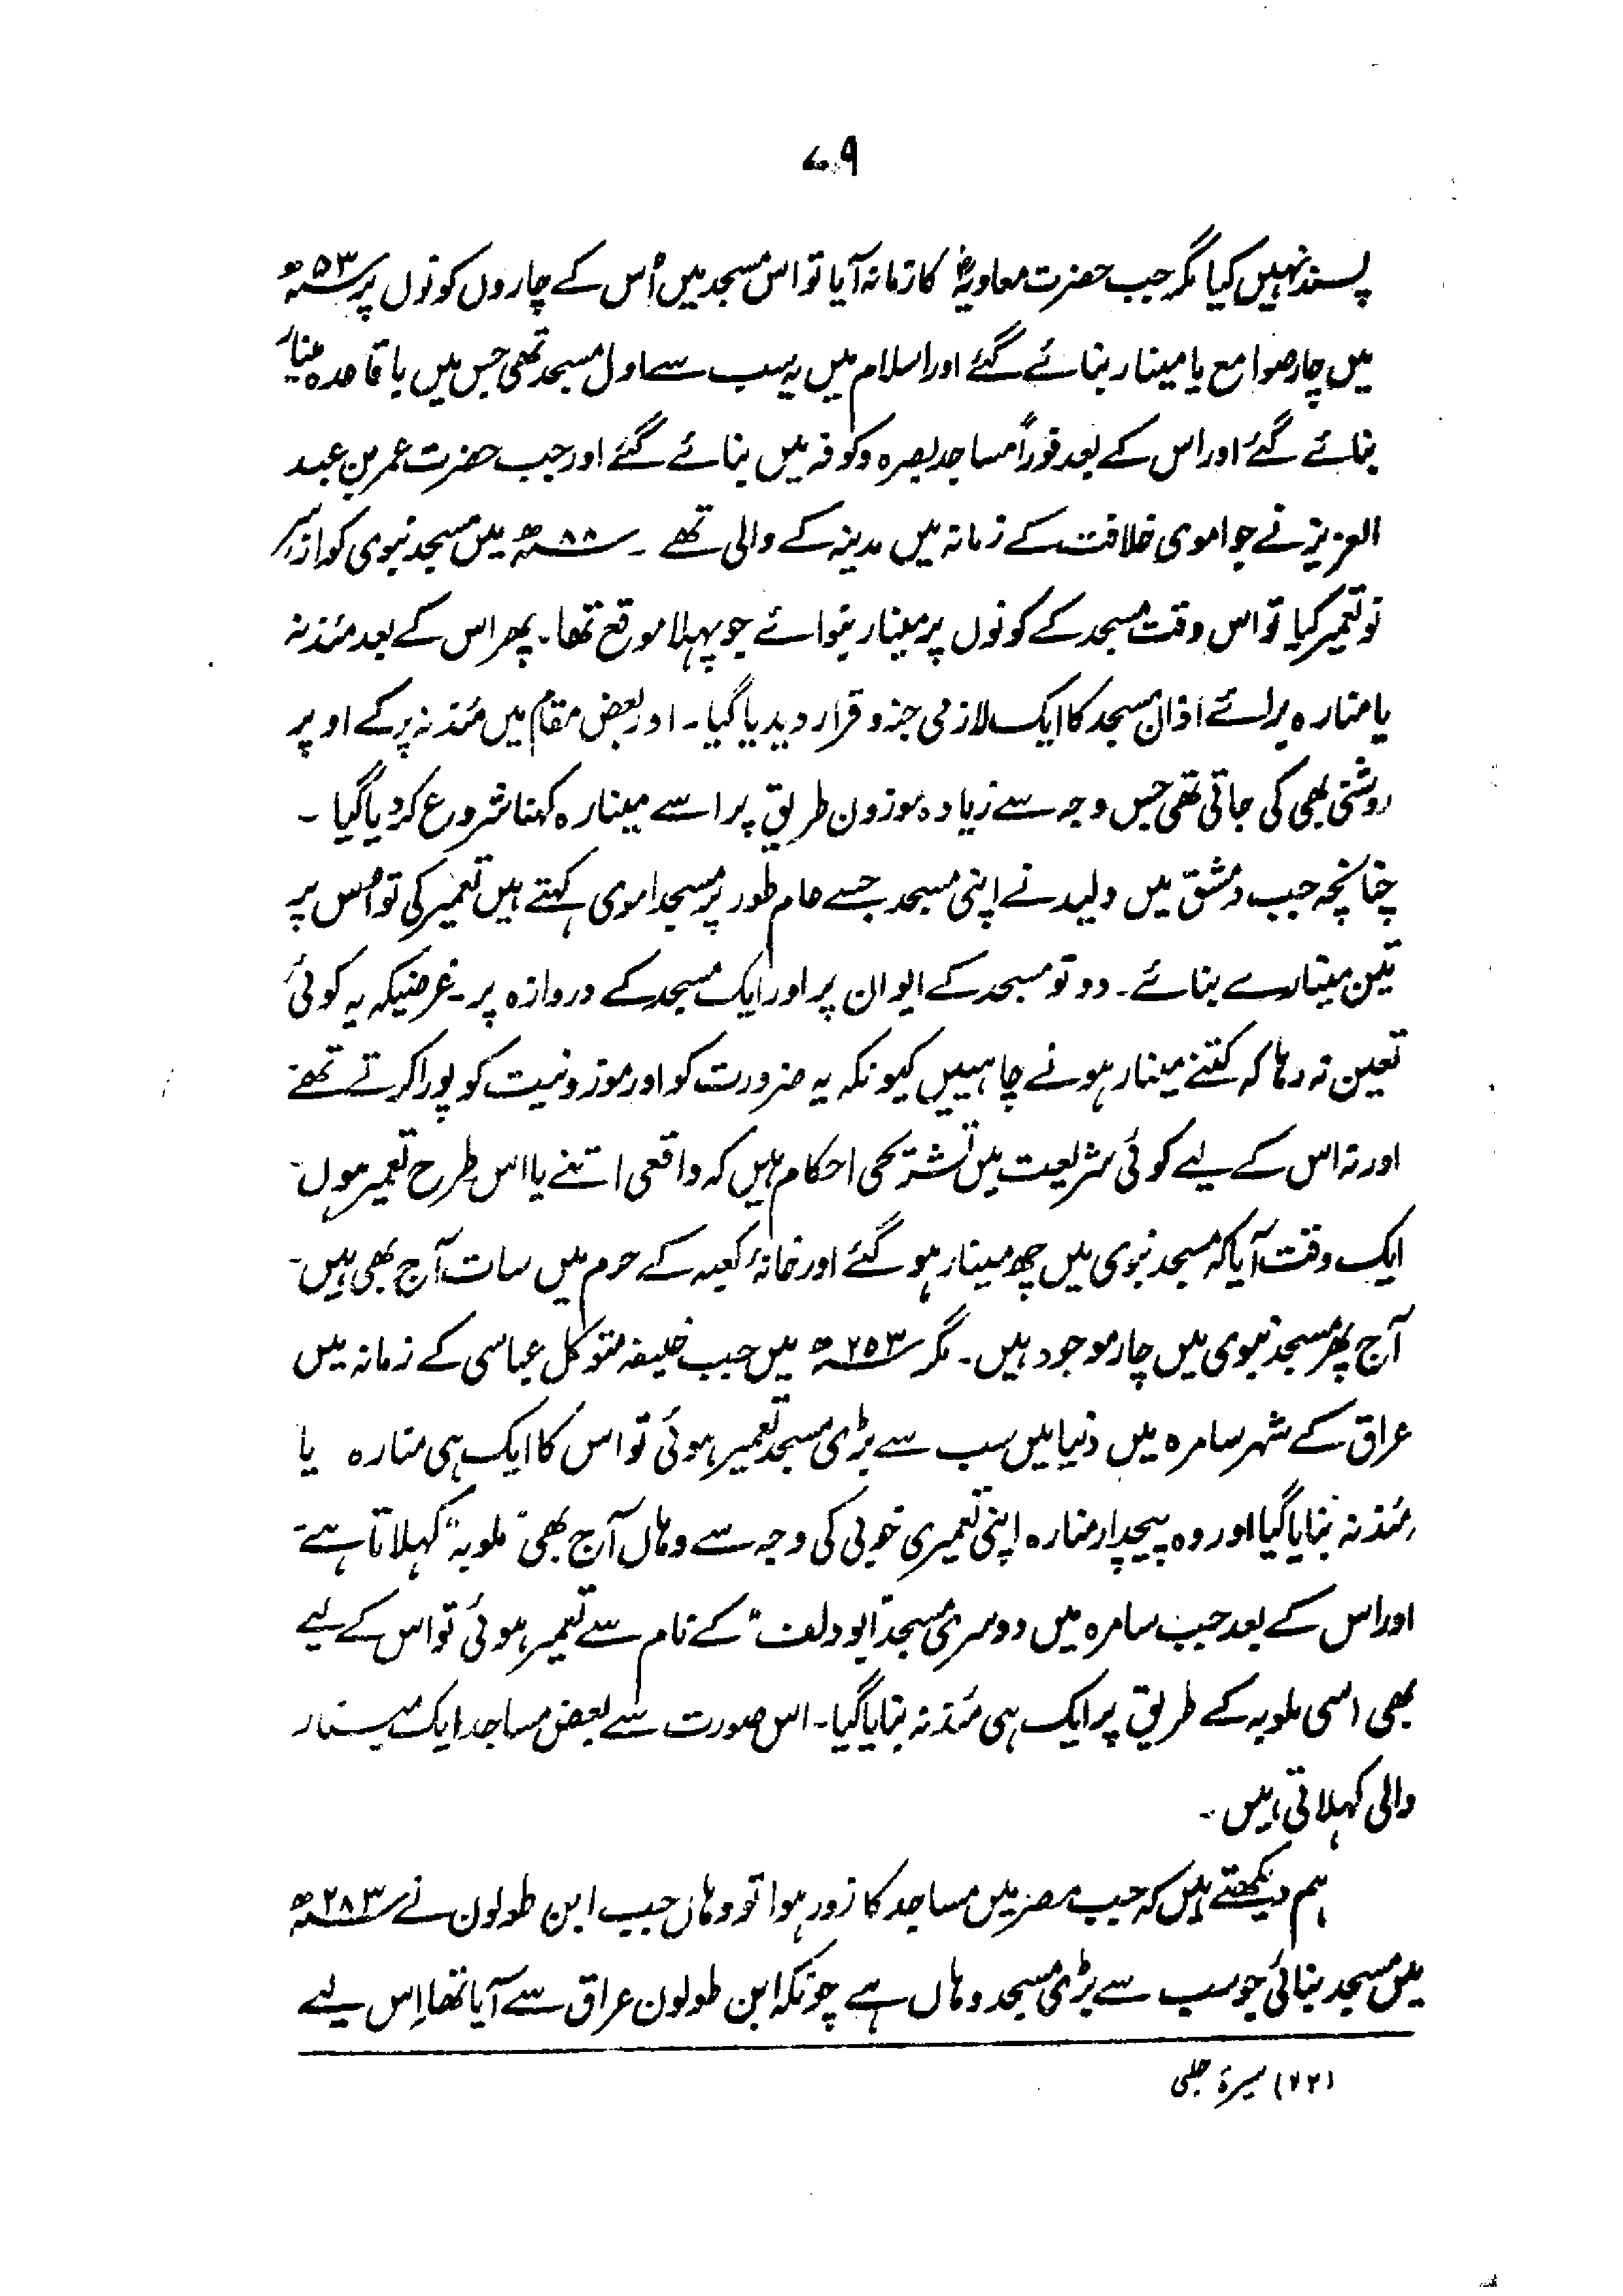 ۷۹
پسند نہیں کیا مگر جب حضرت معاویہؓ کا زمانہ آیا تو اس مسجد میں اُس کے چاروں کونوں پر ۵۳ھ
میں چار صوامع یا مینار بنائے گئے اور اسلام میں یہ سب سے اول مسجد تھی جس میں باقاعدہ مینار
بنائے گئے اور اس کے بعد فوراً مساجد بصرہ و کوفہ میں بنائے گئے اور جب حضرت عمر بن عبد
العزیز نے جو اموی خلافت کے زمانہ میں مدینہ کے والی تھے ۔ ۸۸ھ میں مسجد نبوی کو از سر
نو تعمیر کیا تو اس وقت مسجد کے کونوں پر مینار بنوائے جو پہلا موقع تھا۔ پھر اس کے بعد مئذنہ
یا منارہ برائے اذان مسجد کا ایک لازمی جزو قرار دیدیا گیا۔ اور بعض مقام میں مئذنہ پر کے اوپر
روشنی بھی کی جاتی تھی جس وجہ سے زیادہ موزون طریق پر اسے مینارہ کہنا شروع کر دیا گیا ۔
چنانچہ جب دمشق میں ولید نے اپنی مسجد جسے عام طور پر مسجد اموی کہتے ہیں تعمیر کی تو اُس پر
تین مینارے بنائے۔ دو تو مسجد کے ایوان پر اور ایک مسجد کے دروازہ پر۔ غرضیکہ یہ کوئی
تعین نہ رہا کہ کتنے مینار ہونے چاہییں کیونکہ یہ ضرورت کو اور موزونیت کو پورا کرتے تھے
اور نہ اس کے لیے کوئی شریعت میں تشریحی احکام ہیں کہ واقعی اتنے یا اس طرح تعمیر ہوں۔
ایک وقت آیا کہ مسجد نبوی میں چھ مینار ہو گئے اور خانۂ کعبہ کے حرم میں سات آج بھی ہیں۔
آج پھر مسجد نبوی میں چار موجود ہیں۔ مگر ۲۵۳ھ میں جب خلیفہ متوکل عباسی کے زمانہ میں
عراق کے شہر سامرہ میں دنیا میں سب سے بڑی مسجد تعمیر ہوئی تو اس کا ایک ہی منارہ یا
مئذنہ بنایا گیا اور وہ پیچدار منارہ اپنی تعمیری خوبی کی وجہ سے وہاں آج بھی "ملویہ" کہلاتا ہے۔
اور اس کے بعد جب سامرہ میں دوسری مسجد "ابو دلف" کے نام سے تعمیر ہوئی تو اس کے لیے
بھی اسی ملویہ کے طریق پر ایک ہی مئذنہ بنایا گیا۔ اس صورت سے بعض مساجد ایک مینار
والی کہلاتی ہیں ۔
ہم دیکھتے ہیں کہ جب مصر میں مساجد کا زور ہوا تو وہاں جب ابن طولون نے ۲۸۳ھ
میں مسجد بنائی جو سب سے بڑی مسجد وہاں ہے چونکہ ابن طولون عراق سے آیا تھا اِس لیے
(۷۲) سیرۃ حلبی